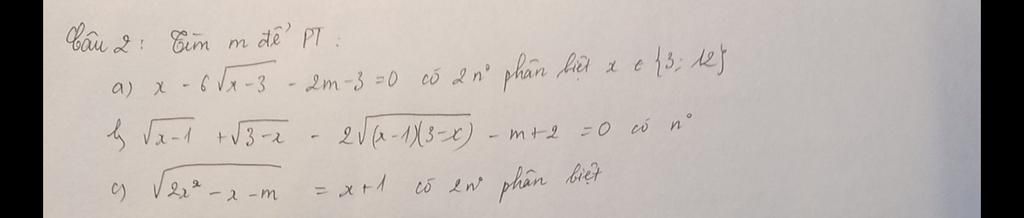 Câu 2: Tìm m để PT:
a) x - 6√(x-3) - 2m-3=0 có 2 n° phân biệt x ∈ {3; 12}
b) √(x-1) + √(3-x) - 2√((x-1)(3-x)) - m+2 = 0 có n°
c) √(2x² - x - m) = x+1 có 2n° phân biệt